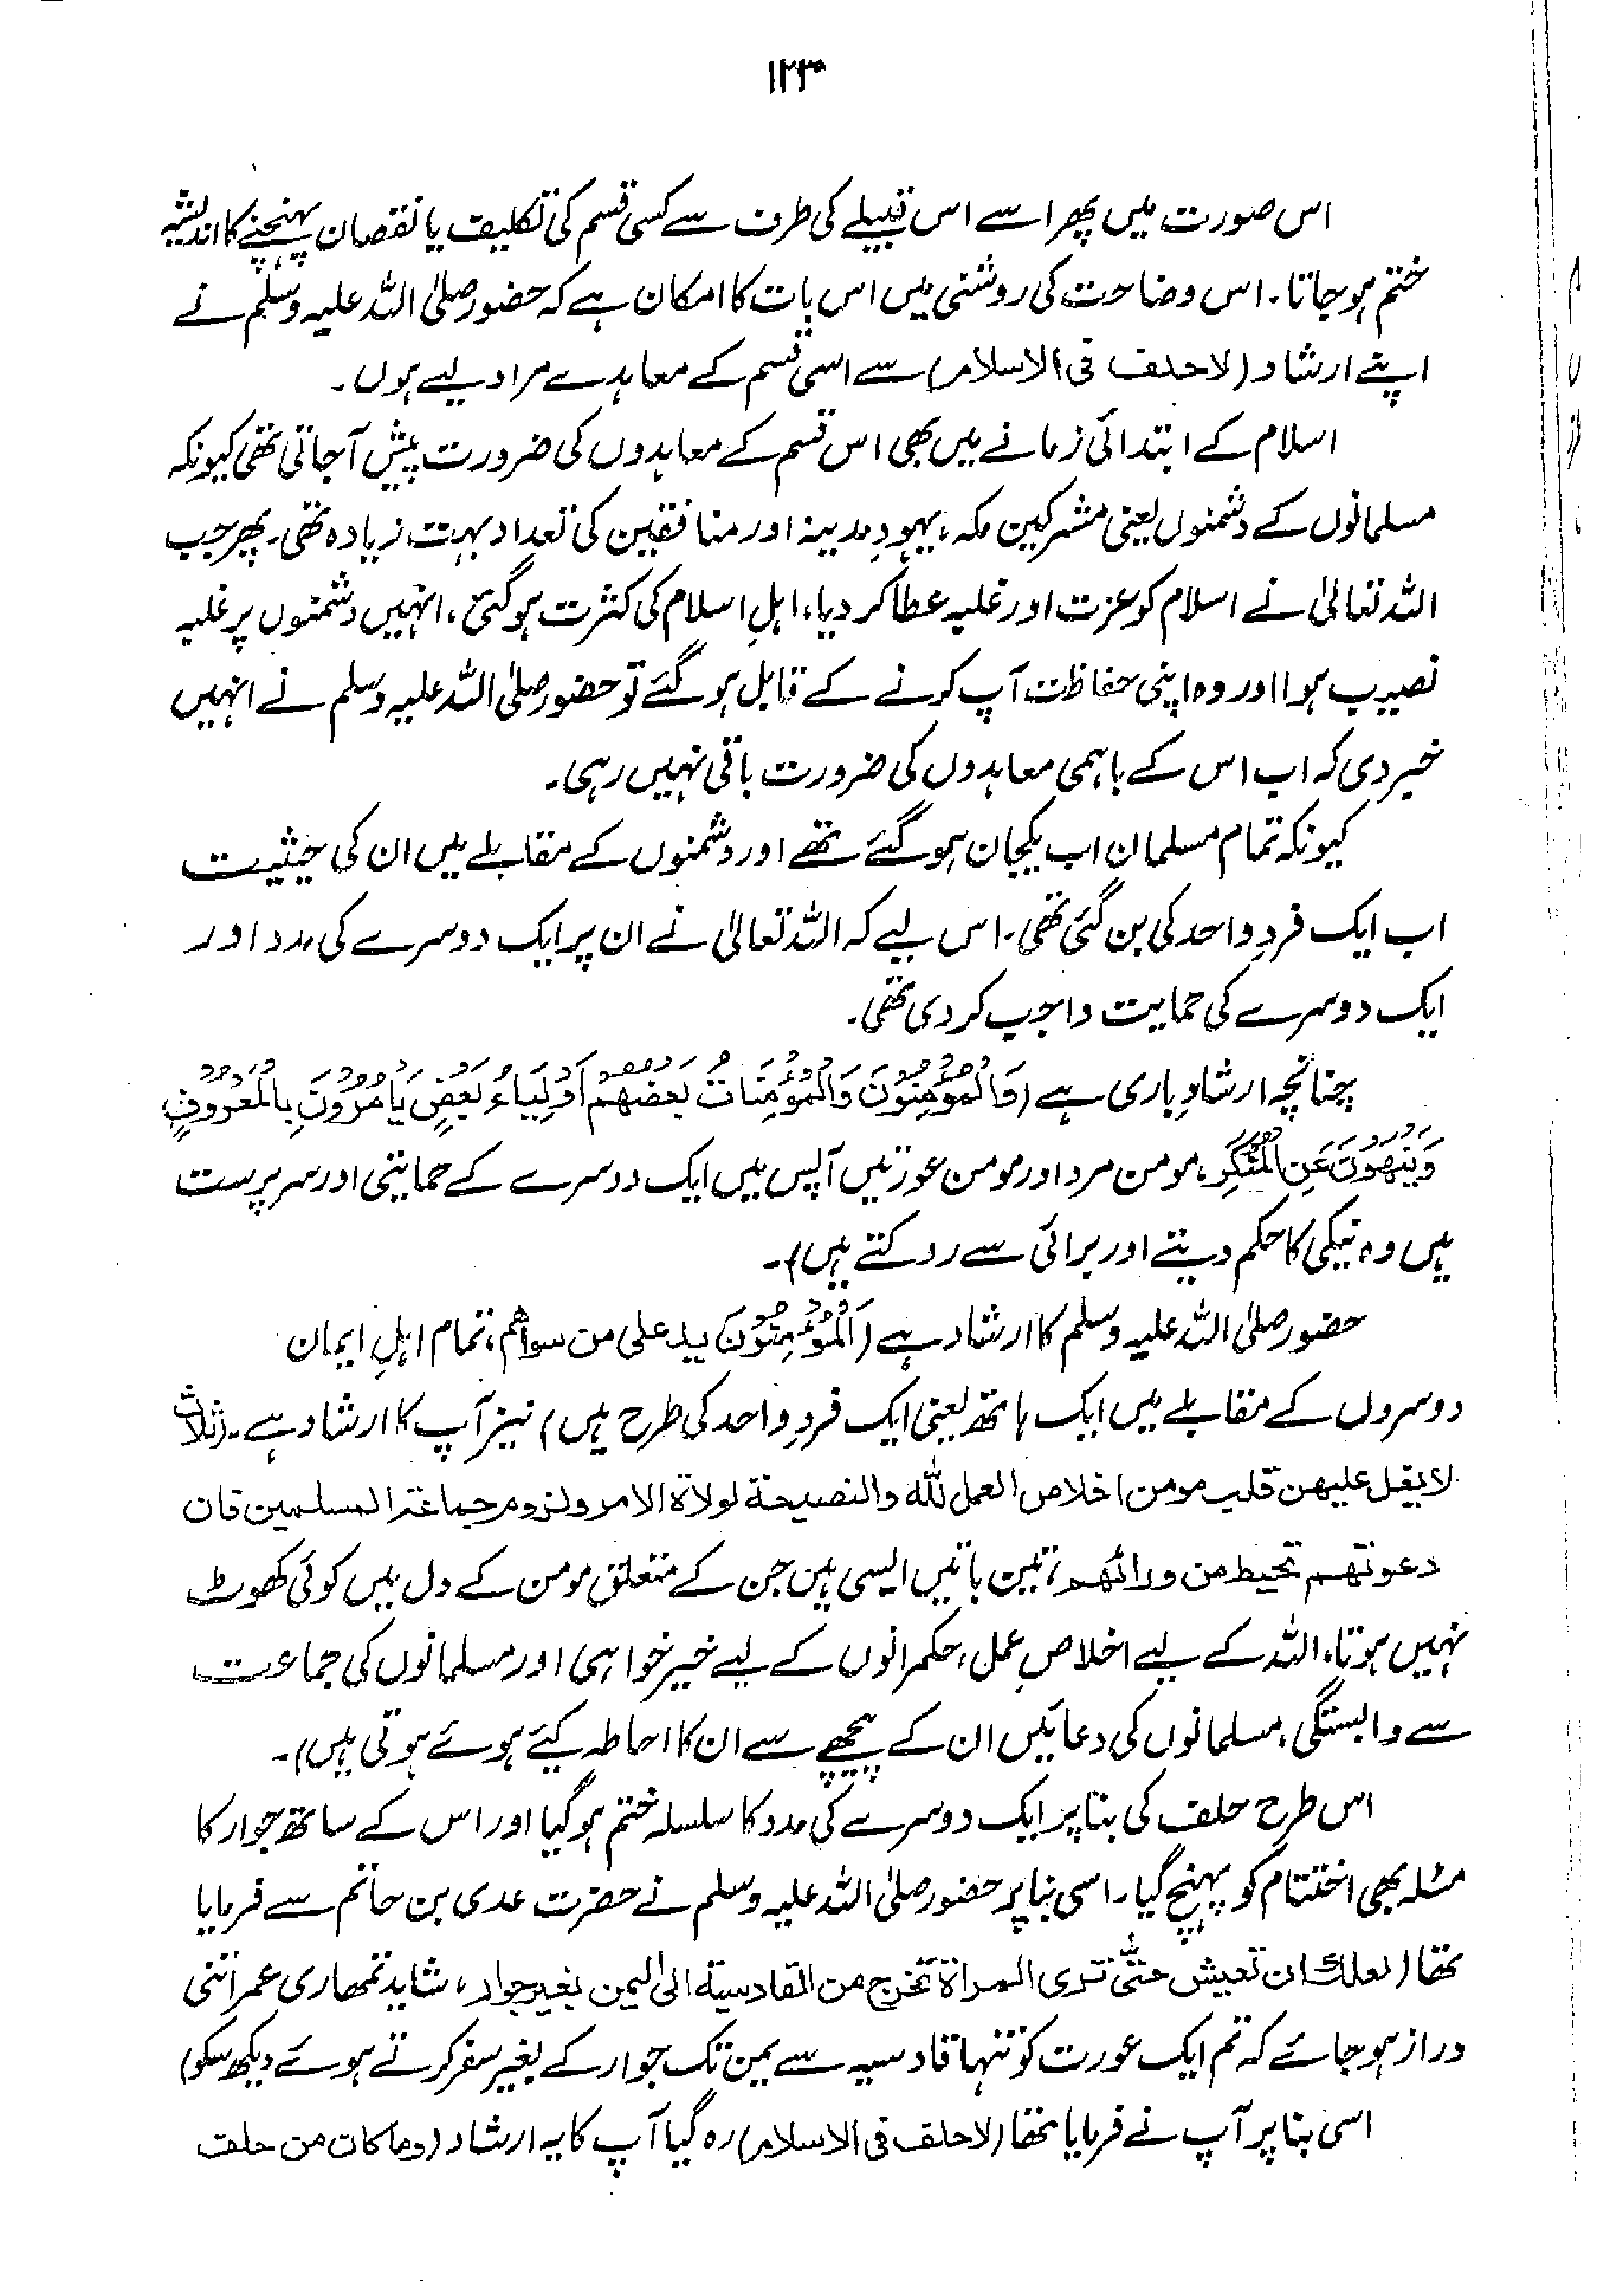 ۱۲۳
اس صورت میں پھر اسے اس قبیلے کی طرف سے کسی قسم کی تکلیف یا نقصان پہنچنے کا اندیشہ
ختم ہو جاتا۔ اس وضاحت کی روشنی میں اس بات کا امکان ہے کہ حضور صلی اللہ علیہ وسلم نے
اپنے ارشاد (لاحلف فی الاسلام) سے اسی قسم کے معاہدے مراد لیے ہوں۔
اسلام کے ابتدائی زمانے میں بھی اس قسم کے معاہدوں کی ضرورت پیش آجاتی تھی کیونکہ
مسلمانوں کے دشمنوں یعنی مشرکین مکہ، یہودِ مدینہ اور منافقین کی تعداد بہت زیادہ تھی۔ پھر جب
اللہ تعالیٰ نے اسلام کو عزت اور غلبہ عطا کر دیا، اہلِ اسلام کی کثرت ہو گئی، انہیں دشمنوں پر غلبہ
نصیب ہوا اور وہ اپنی حفاظت آپ کرنے کے قابل ہو گئے تو حضور صلی اللہ علیہ وسلم نے انہیں
خبر دی کہ اب اس کے باہمی معاہدوں کی ضرورت باقی نہیں رہی۔
کیونکہ تمام مسلمان اب یکجان ہو گئے تھے اور دشمنوں کے مقابلے میں ان کی حیثیت
اب ایک فردِ واحد کی بن گئی تھی۔ اس لیے کہ اللہ تعالیٰ نے ان پر ایک دوسرے کی مدد اور
ایک دوسرے کی حمایت واجب کر دی تھی۔
چنانچہ ارشادِ باری ہے (وَالْمُؤْمِنُوْنَ وَالْمُؤْمِنَاتُ بَعْضُهُمْ اَوْلِيَاءُ بَعْضٍ يَاْمُرُوْنَ بِالْمَعْرُوْفِ
وَيَنْهَوْنَ عَنِ الْمُنْكَرِ، مومن مرد اور مومن عورتیں آپس میں ایک دوسرے کے حمایتی اور سرپرست
ہیں وہ نیکی کا حکم دیتے اور برائی سے روکتے ہیں)۔
حضور صلی اللہ علیہ وسلم کا ارشاد ہے (اَلْمُؤْمِنُوْنَ ید علی من سواھم، تمام اہلِ ایمان
دوسروں کے مقابلے میں ایک ہاتھ یعنی ایک فردِ واحد کی طرح ہیں) نیز آپ کا ارشاد ہے۔ (ثلاث
لا یغل علیھن قلب مومن اخلاص العمل للہ والنصیحۃ لولاۃ الامر ولزوم جماعۃ المسلمین فان
دعوتھم تحیط من ورائھم، تین باتیں ایسی ہیں جن کے متعلق مومن کے دل میں کوئی کھوٹ
نہیں ہوتا، اللہ کے لیے اخلاصِ عمل، حکمرانوں کے لیے خیر خواہی اور مسلمانوں کی جماعت
سے وابستگی، مسلمانوں کی دعائیں ان کے پیچھے سے ان کا احاطہ کیے ہوئے ہوتی ہیں)۔
اس طرح حلف کی بنا پر ایک دوسرے کی مدد کا سلسلہ ختم ہو گیا اور اس کے ساتھ جوار کا
مسئلہ بھی اختتام کو پہنچ گیا۔ اسی بنا پر حضور صلی اللہ علیہ وسلم نے حضرت عدی بن حاتم سے فرمایا
تھا (لعلك ان تعیش حتّٰی تری المرأۃ تخرج من القادسیۃ الی الیمن بغیر جوار، شاید تمھاری عمر اتنی
دراز ہو جائے کہ تم ایک عورت کو تنہا قادسیہ سے یمن تک جوار کے بغیر سفر کرتے ہوئے دیکھ سکو)
اسی بنا پر آپ نے فرمایا تھا (لاحلف فی الاسلام) رہ گیا آپ کا یہ ارشاد (وما کان من حلف